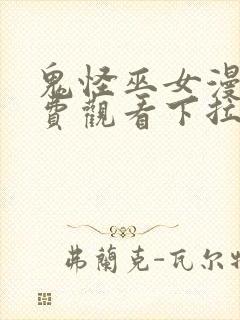 鬼怪巫女漫
費觀看下拉
弗蘭克-瓦尔特